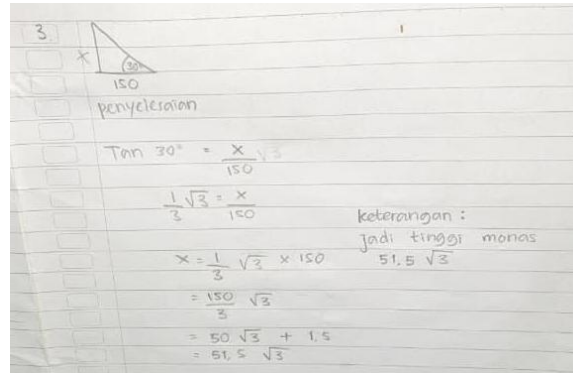 3
x
30°
150
penyelesaian
Tan 30° = x/150 √3
1/3 √3 = x/150
x = 1/3 √3 × 150
= 150/3 √3
= 50 √3 + 1,5
= 51,5 √3
keterangan :
jadi tinggi monas
51,5 √3